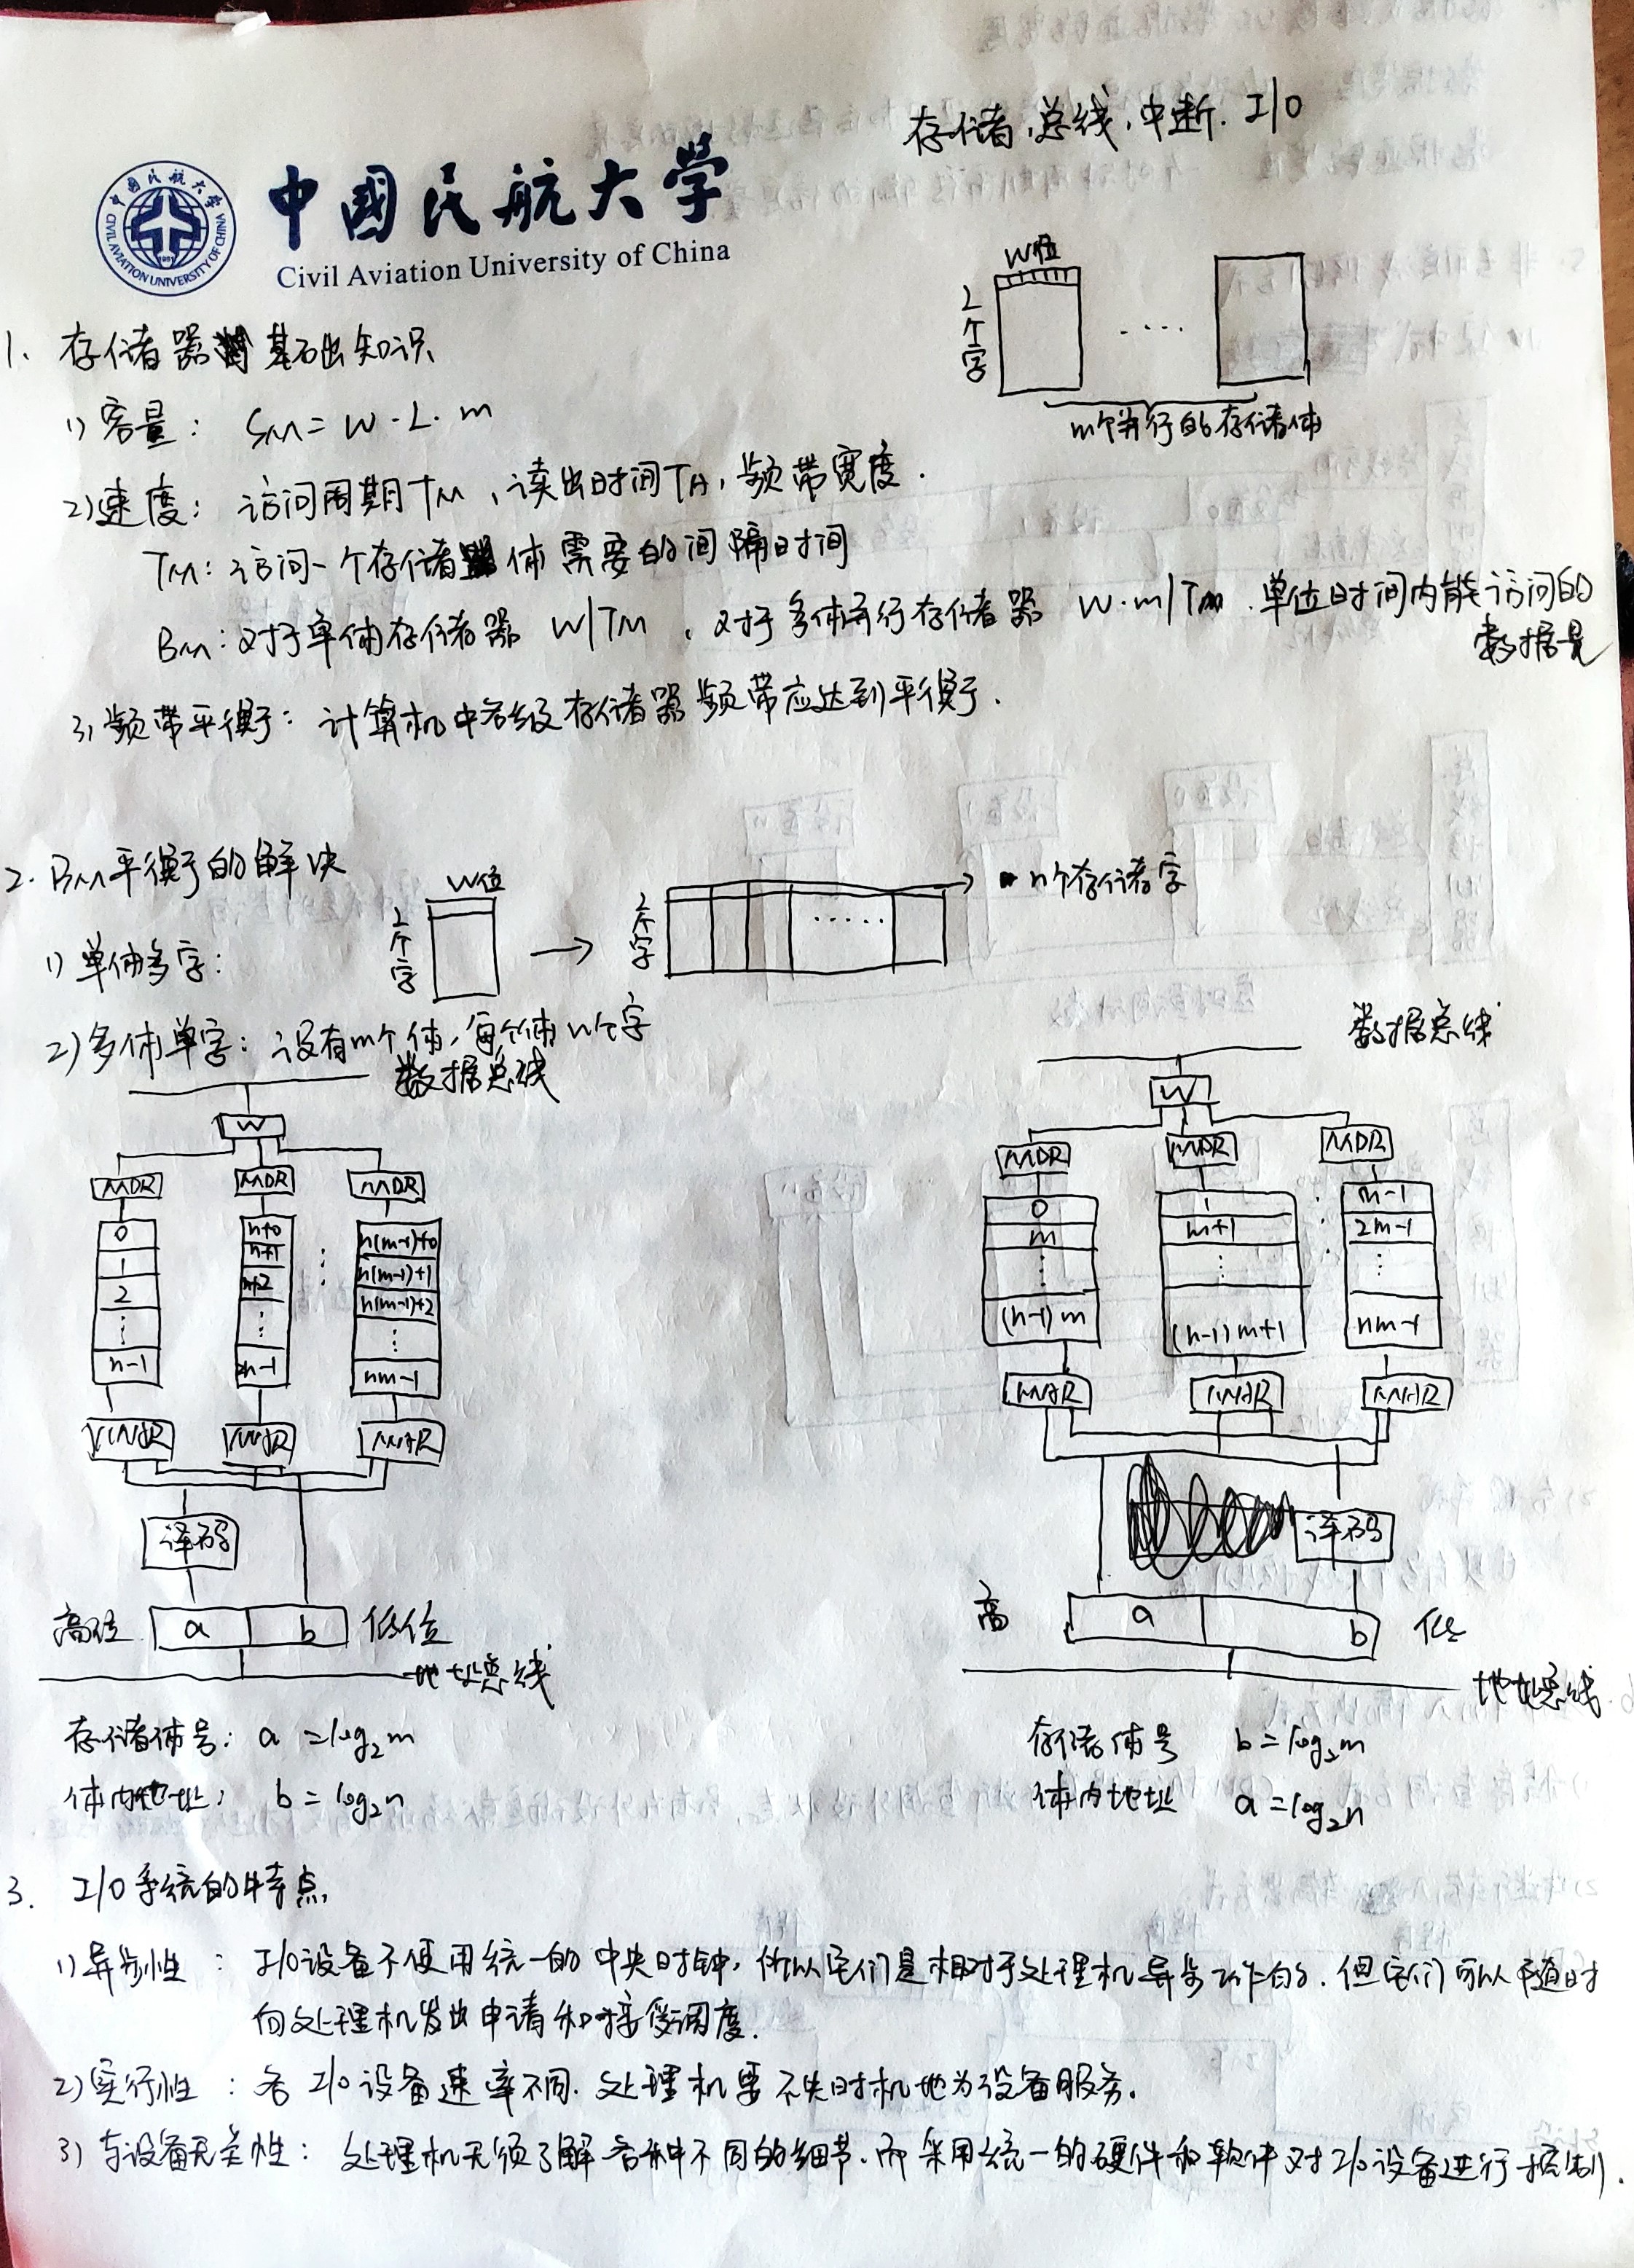 存储, 总线, 中断. I/O
中國民航大学
Civil Aviation University of China
W位
L个字
.....
m个并行的存储体
1. 存储器基础知识
1) 容量: SM = W·L·m
2) 速度: 访问周期TM, 读出时间TA, 频带宽度.
TM: 访问一个存储体需要的间隔时间
BM: 对于单体存储器 W/TM, 对于多体并行存储器 W·m/TM. 单位时间内能访问的
数据量
3) 频带平衡: 计算机中各级存储器频带应达到平衡.
2. BM平衡的解决
1) 单体多字:
W位
L个字
→
L个字
.....
n个存储字
2) 多体单字: 设有m个体, 每个体n个字
数据总线
W
MDR MDR MDR
0 n+0 n(m-1)+0
1 n+1 n(m-1)+1
2 n+2 n(m-1)+2
n-1 2n-1 nm-1
MAR MAR MAR
译码
高位 a b 低位
地址总线
存储体号: a = log₂m
体内地址: b = log₂n
数据总线
W
MDR MDR MDR
0 1 m-1
m m+1 2m-1
(n-1)m (n-1)m+1 nm-1
MAR MAR MAR
译码
高 a b 低
地址总线
存储体号 b = log₂m
体内地址 a = log₂n
3. I/O系统的特点
1) 异步性: I/O设备不使用统一的中央时钟, 所以它们是相对于处理机异步工作的. 但它们可以随时
向处理机发出申请和接受调度.
2) 实行性: 各I/O设备速率不同. 处理机要不失时机地为设备服务.
3) 与设备无关性: 处理机无须了解各种不同的细节. 而采用统一的硬件和软件对I/O设备进行控制.